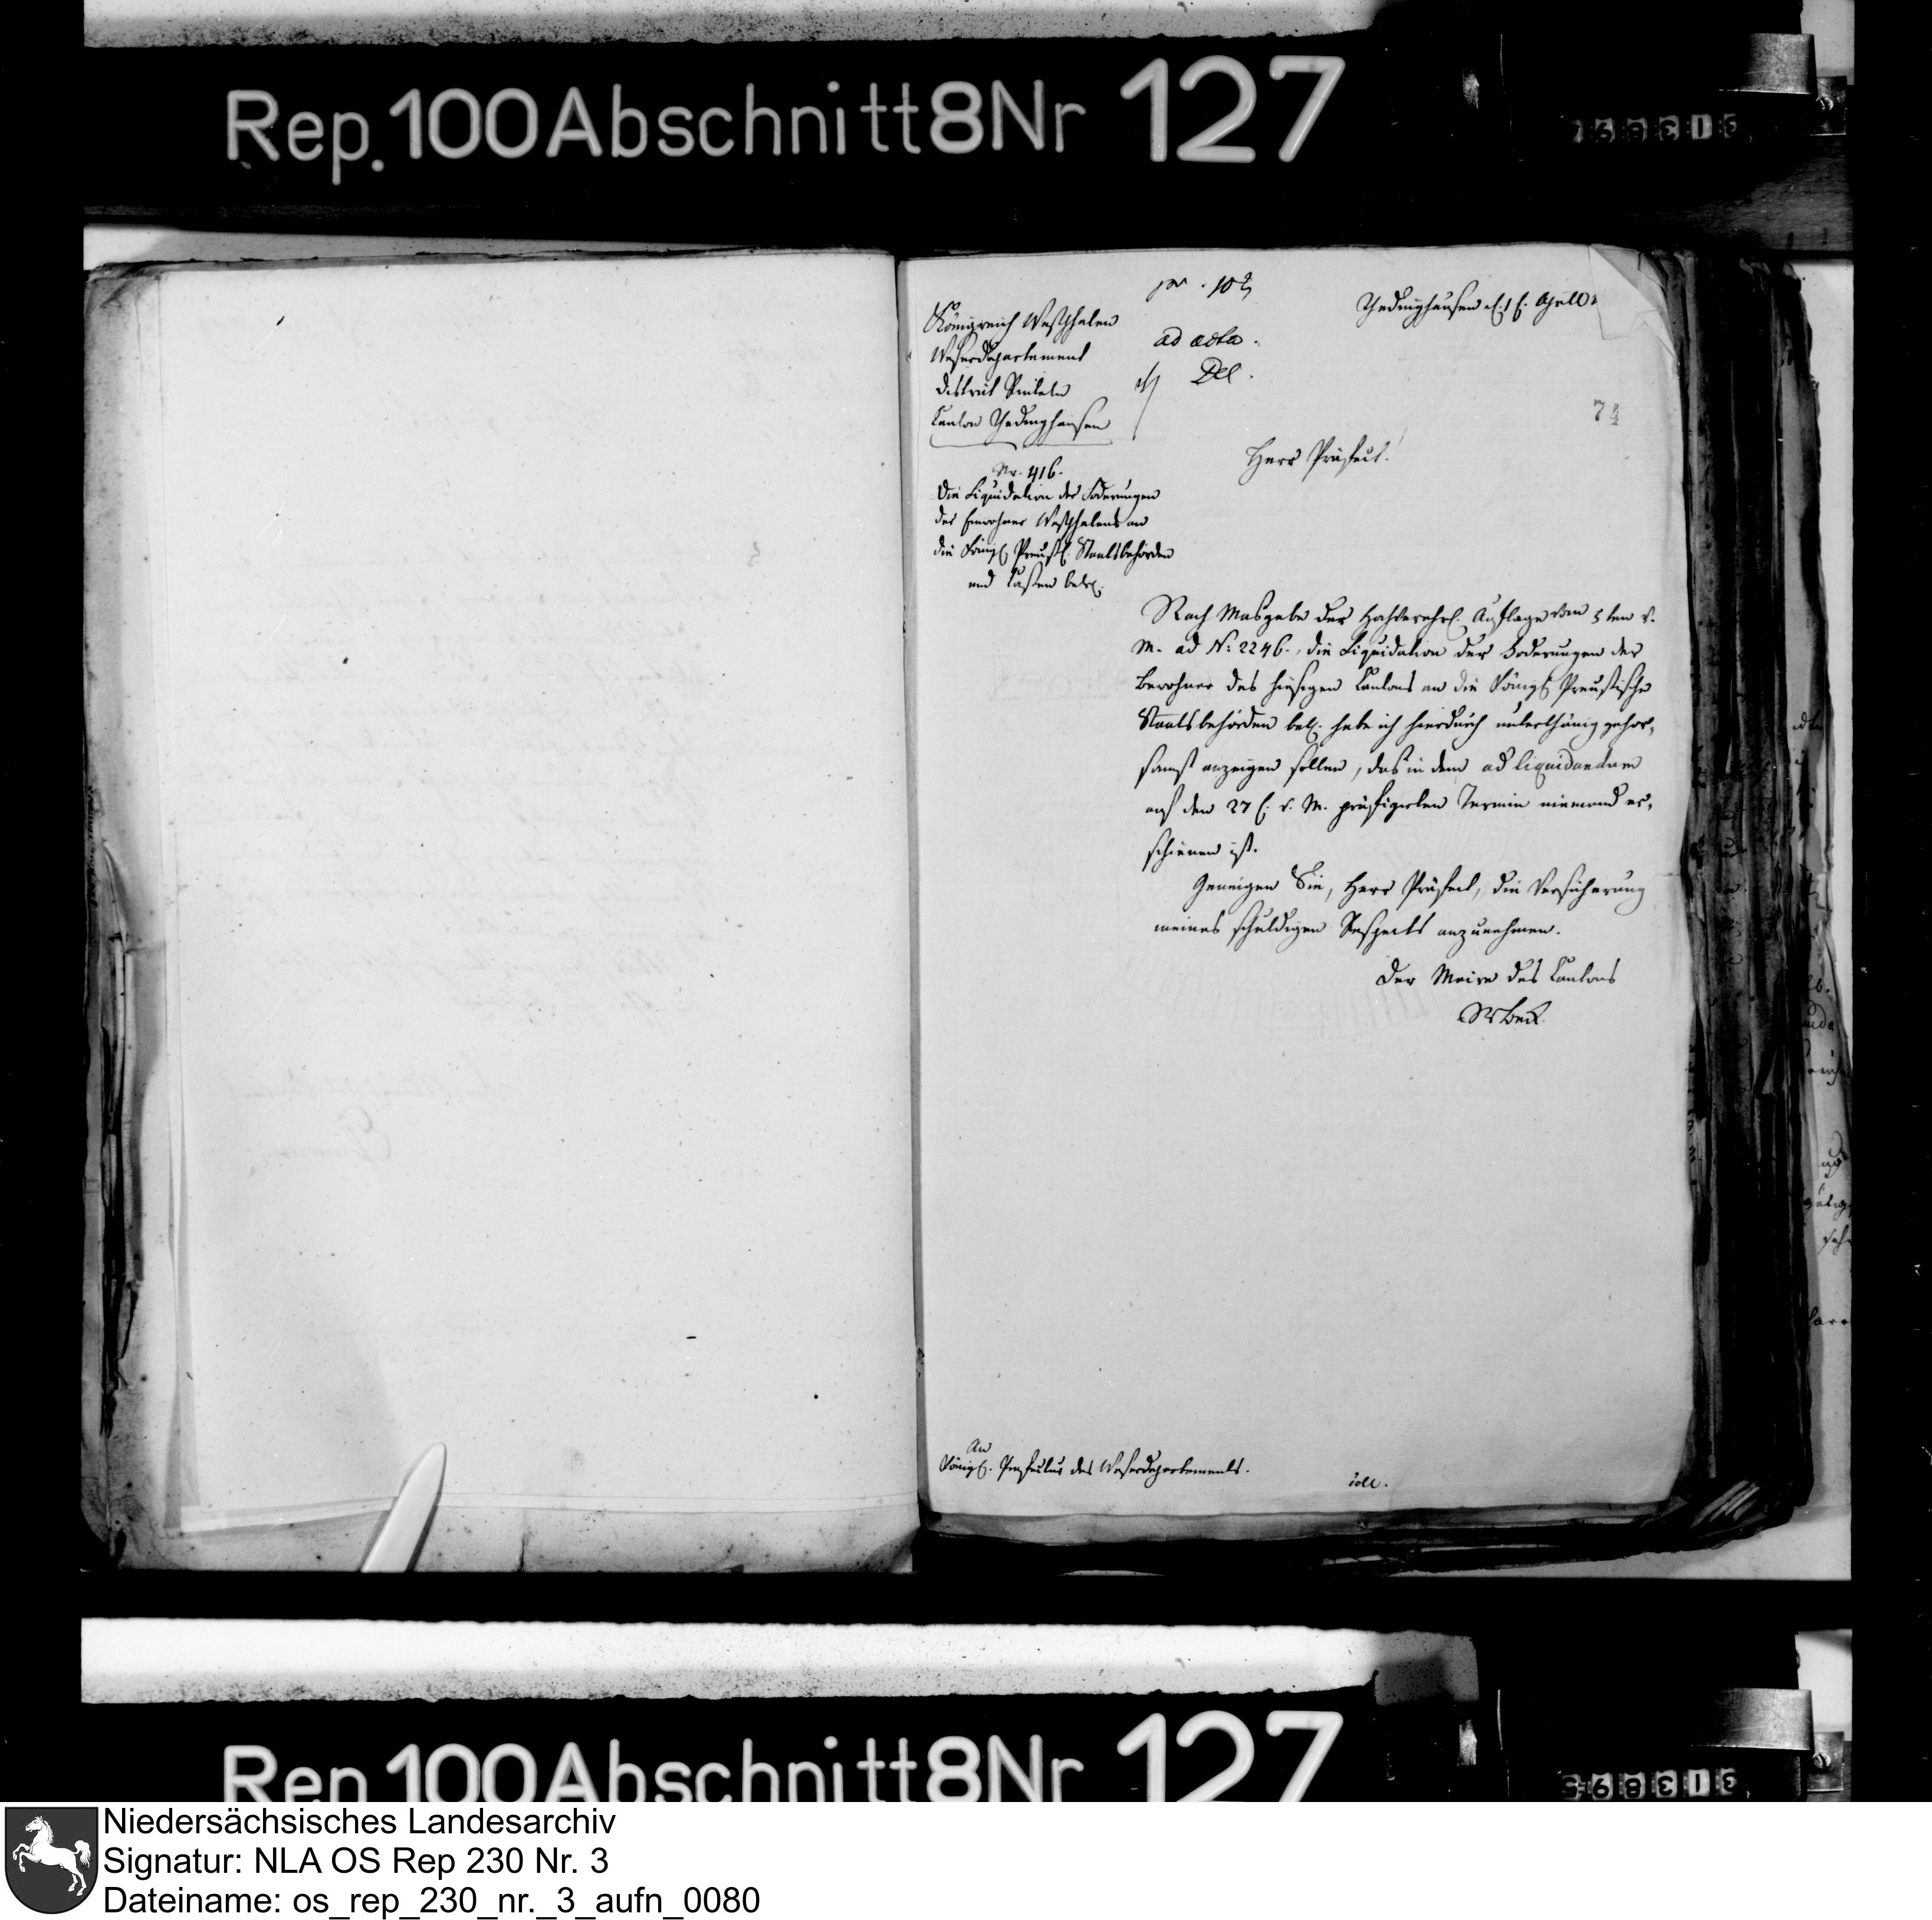 Rep. 100 Abschnitt 8 Nr 127
Königreich Westphalen
Weserdepartement
District Rinteln
Canton Thedinghausen
ad acta.
Thedinghausen d. 1 t. April
74
Nr. 416.
Die Liquidation der Foderungen
der Einwohner Westphalens an
die Königl. Preußl. Staatsbehörden
und Caßen betr.
Herr Präfect!
Nach Masgabe der Hochverehrl. Auflage vom 5ten v.
M. ad N: 2246., die Liquidation der Foderungen der
Bewohner des hiesigen Cantons an die Königl. Preußische
Staatsbehörden betr. habe ich hierdurch unterthänig gehor-
samst anzeigen sollen, daß in dem ad liquidandum
auf den 27 t. v. M. präfigirten Termin niemand er-
schienen ist.
Geneigen Sie, Herr Präfect, die Versicherung
meines schuldigen Respects anzunehmen.
Der Maire des Cantons
An
Königl. Praefectur des Weserdepartements.
Rep 100 Abschnitt 8 Nr 127
Niedersächsisches Landesarchiv
Signatur: NLA OS Rep 230 Nr. 3
Dateiname: os_rep_230_nr._3_aufn_0080